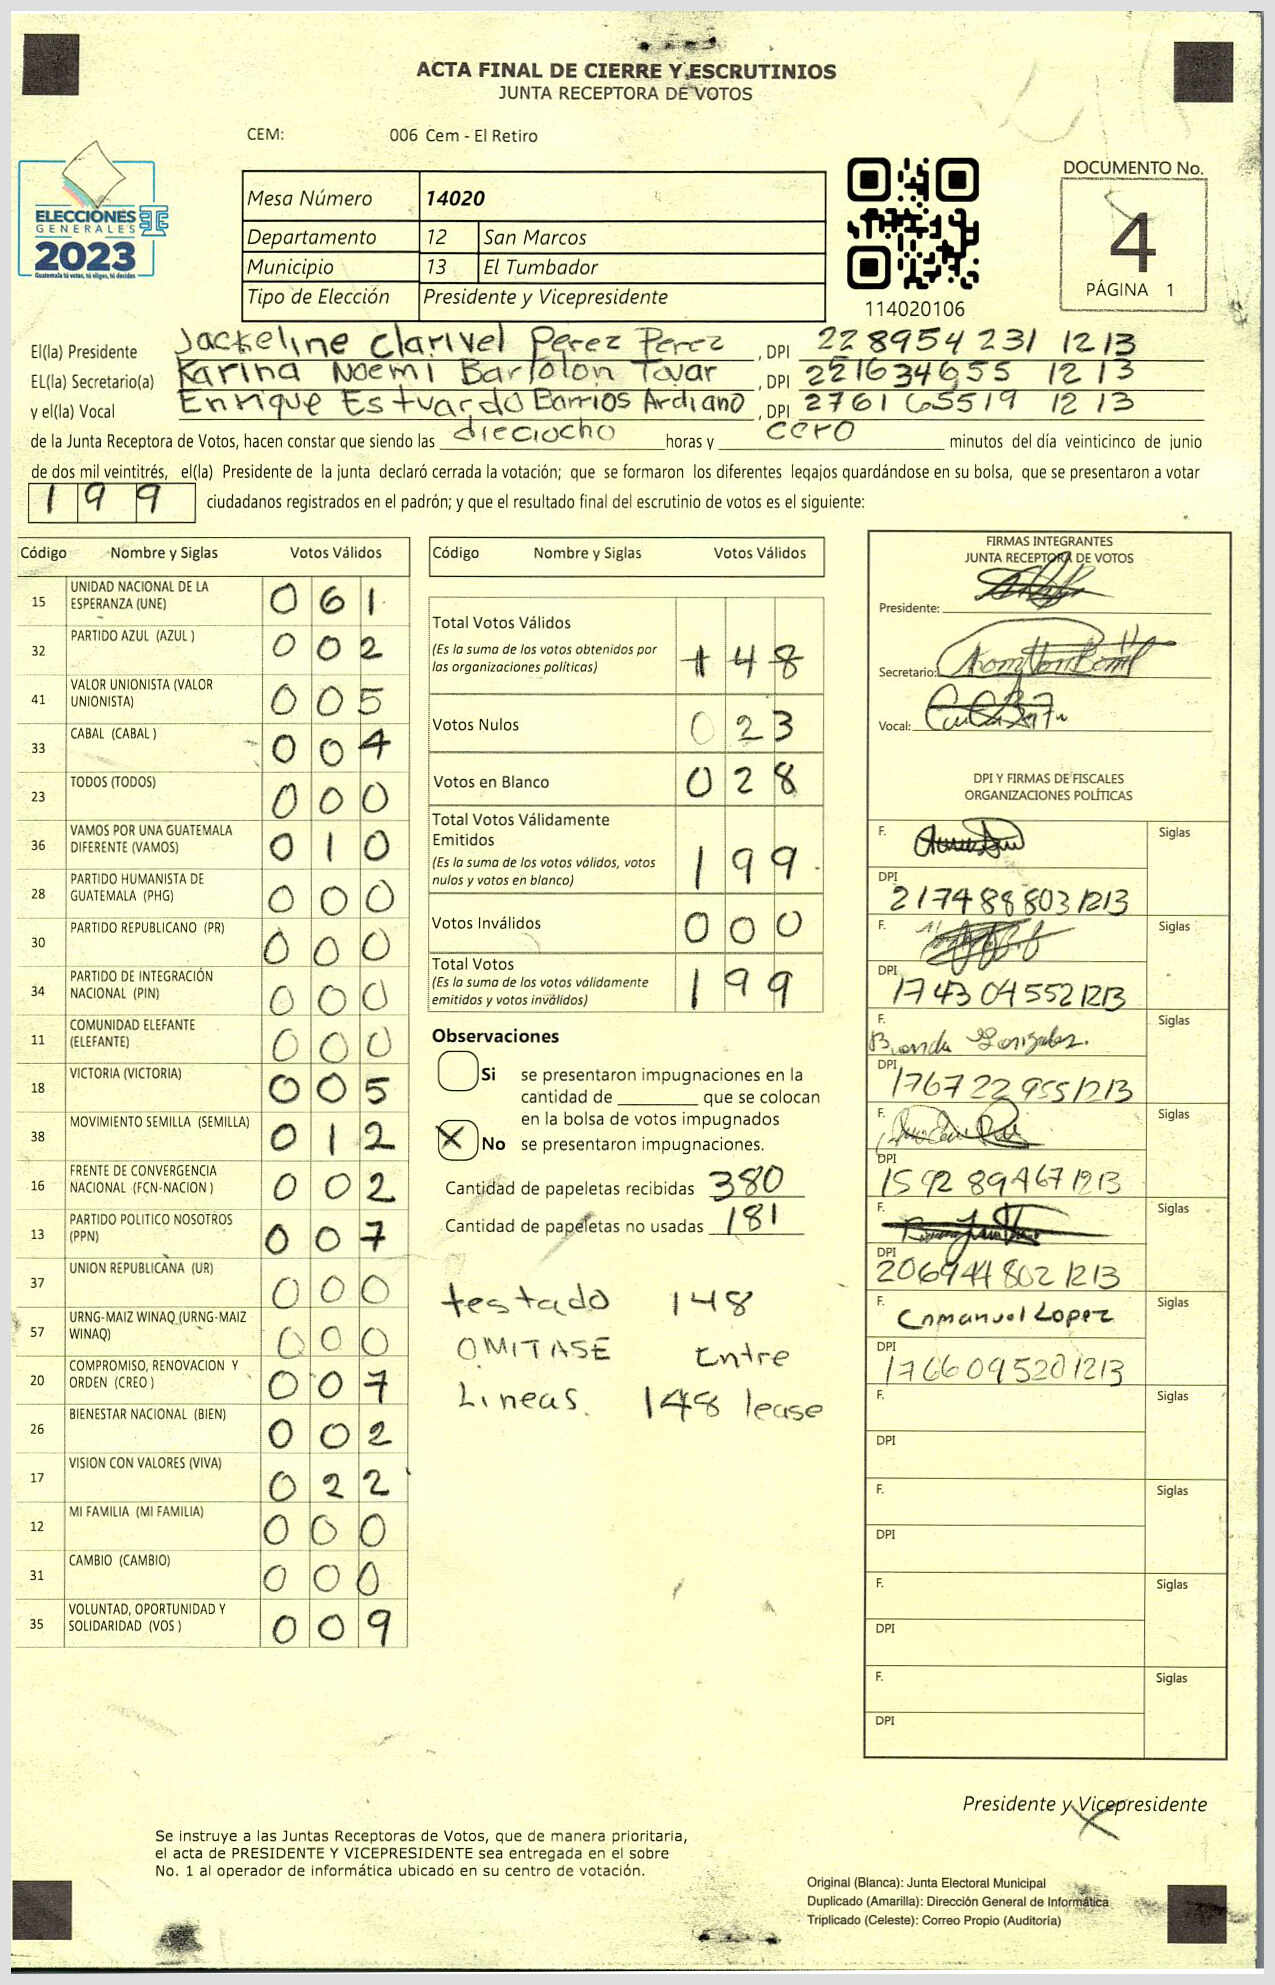 ACTA FINAL DE CIERRE Y ESCRUTINIOS
JUNTA RECEPTORA DE VOTOS
CEM: 006 Cem - El Retiro
DOCUMENTO No.
4
PÁGINA 1
ELECCIONES
GENERALES
2023
Guatemala tú votas, tú eliges, tú decides
Mesa Número 14020
Departamento 12 San Marcos
Municipio 13 El Tumbador
Tipo de Elección Presidente y Vicepresidente
114020106
El(la) Presidente Jackeline Clarivel Perez Perez, DPI 228954231 1213
EL(la) Secretario(a) Karina Noemi Bartolon Tovar, DPI 221634655 1213
y el(la) Vocal Enrique Estuardo Barrios Ardiano, DPI 276165519 1213
de la Junta Receptora de Votos, hacen constar que siendo las dieciocho horas y cero minutos del día veinticinco de junio
de dos mil veintitrés, el(la) Presidente de la junta declaró cerrada la votación; que se formaron los diferentes legajos quardándose en su bolsa, que se presentaron a votar
199 ciudadanos registrados en el padrón; y que el resultado final del escrutinio de votos es el siguiente:
Código Nombre y Siglas Votos Válidos
15 UNIDAD NACIONAL DE LA ESPERANZA (UNE) 061
32 PARTIDO AZUL (AZUL ) 002
41 VALOR UNIONISTA (VALOR UNIONISTA) 005
33 CABAL (CABAL ) 004
23 TODOS (TODOS) 000
36 VAMOS POR UNA GUATEMALA DIFERENTE (VAMOS) 010
28 PARTIDO HUMANISTA DE GUATEMALA (PHG) 000
30 PARTIDO REPUBLICANO (PR) 000
34 PARTIDO DE INTEGRACIÓN NACIONAL (PIN) 000
11 COMUNIDAD ELEFANTE (ELEFANTE) 000
18 VICTORIA (VICTORIA) 005
38 MOVIMIENTO SEMILLA (SEMILLA) 012
16 FRENTE DE CONVERGENCIA NACIONAL (FCN-NACION ) 002
13 PARTIDO POLITICO NOSOTROS (PPN) 007
37 UNION REPUBLICANA (UR) 000
57 URNG-MAIZ WINAQ (URNG-MAIZ WINAQ) 000
20 COMPROMISO, RENOVACION Y ORDEN (CREO ) 007
26 BIENESTAR NACIONAL (BIEN) 002
17 VISION CON VALORES (VIVA) 022
12 MI FAMILIA (MI FAMILIA) 000
31 CAMBIO (CAMBIO) 000
35 VOLUNTAD, OPORTUNIDAD Y SOLIDARIDAD (VOS ) 009
Código Nombre y Siglas Votos Válidos
Total Votos Válidos
(Es la suma de los votos obtenidos por
las organizaciones políticas) 148
Votos Nulos 023
Votos en Blanco 028
Total Votos Válidamente
Emitidos
(Es la suma de los votos válidos, votos
nulos y votos en blanco) 199
Votos Inválidos 000
Total Votos
(Es la suma de los votos válidamente
emitidos y votos inválidos) 199
Observaciones
Si se presentaron impugnaciones en la
cantidad de ________ que se colocan
en la bolsa de votos impugnados
X No se presentaron impugnaciones.
Cantidad de papeletas recibidas 380
Cantidad de papeletas no usadas 181
testado 148
OMITASE Entre
Lineas. 148 lease
FIRMAS INTEGRANTES
JUNTA RECEPTORA DE VOTOS
Presidente:
Secretario:
Vocal:
DPI Y FIRMAS DE FISCALES
ORGANIZACIONES POLÍTICAS
F. Siglas
DPI 217488803 1213
F. Siglas
DPI 174304552 1213
F. Gonzalez. Siglas
DPI 176722955 1213
F. Siglas
DPI 159289467 1213
F. Siglas
DPI 206944802 1213
F. Enmanuel Lopez Siglas
DPI 176609520 1213
F. Siglas
DPI
F. Siglas
DPI
F. Siglas
DPI
F. Siglas
DPI
Presidente y Vicepresidente
Se instruye a las Juntas Receptoras de Votos, que de manera prioritaria,
el acta de PRESIDENTE Y VICEPRESIDENTE sea entregada en el sobre
No. 1 al operador de informática ubicado en su centro de votación.
Original (Blanca): Junta Electoral Municipal
Duplicado (Amarilla): Dirección General de Informática
Triplicado (Celeste): Correo Propio (Auditoría)